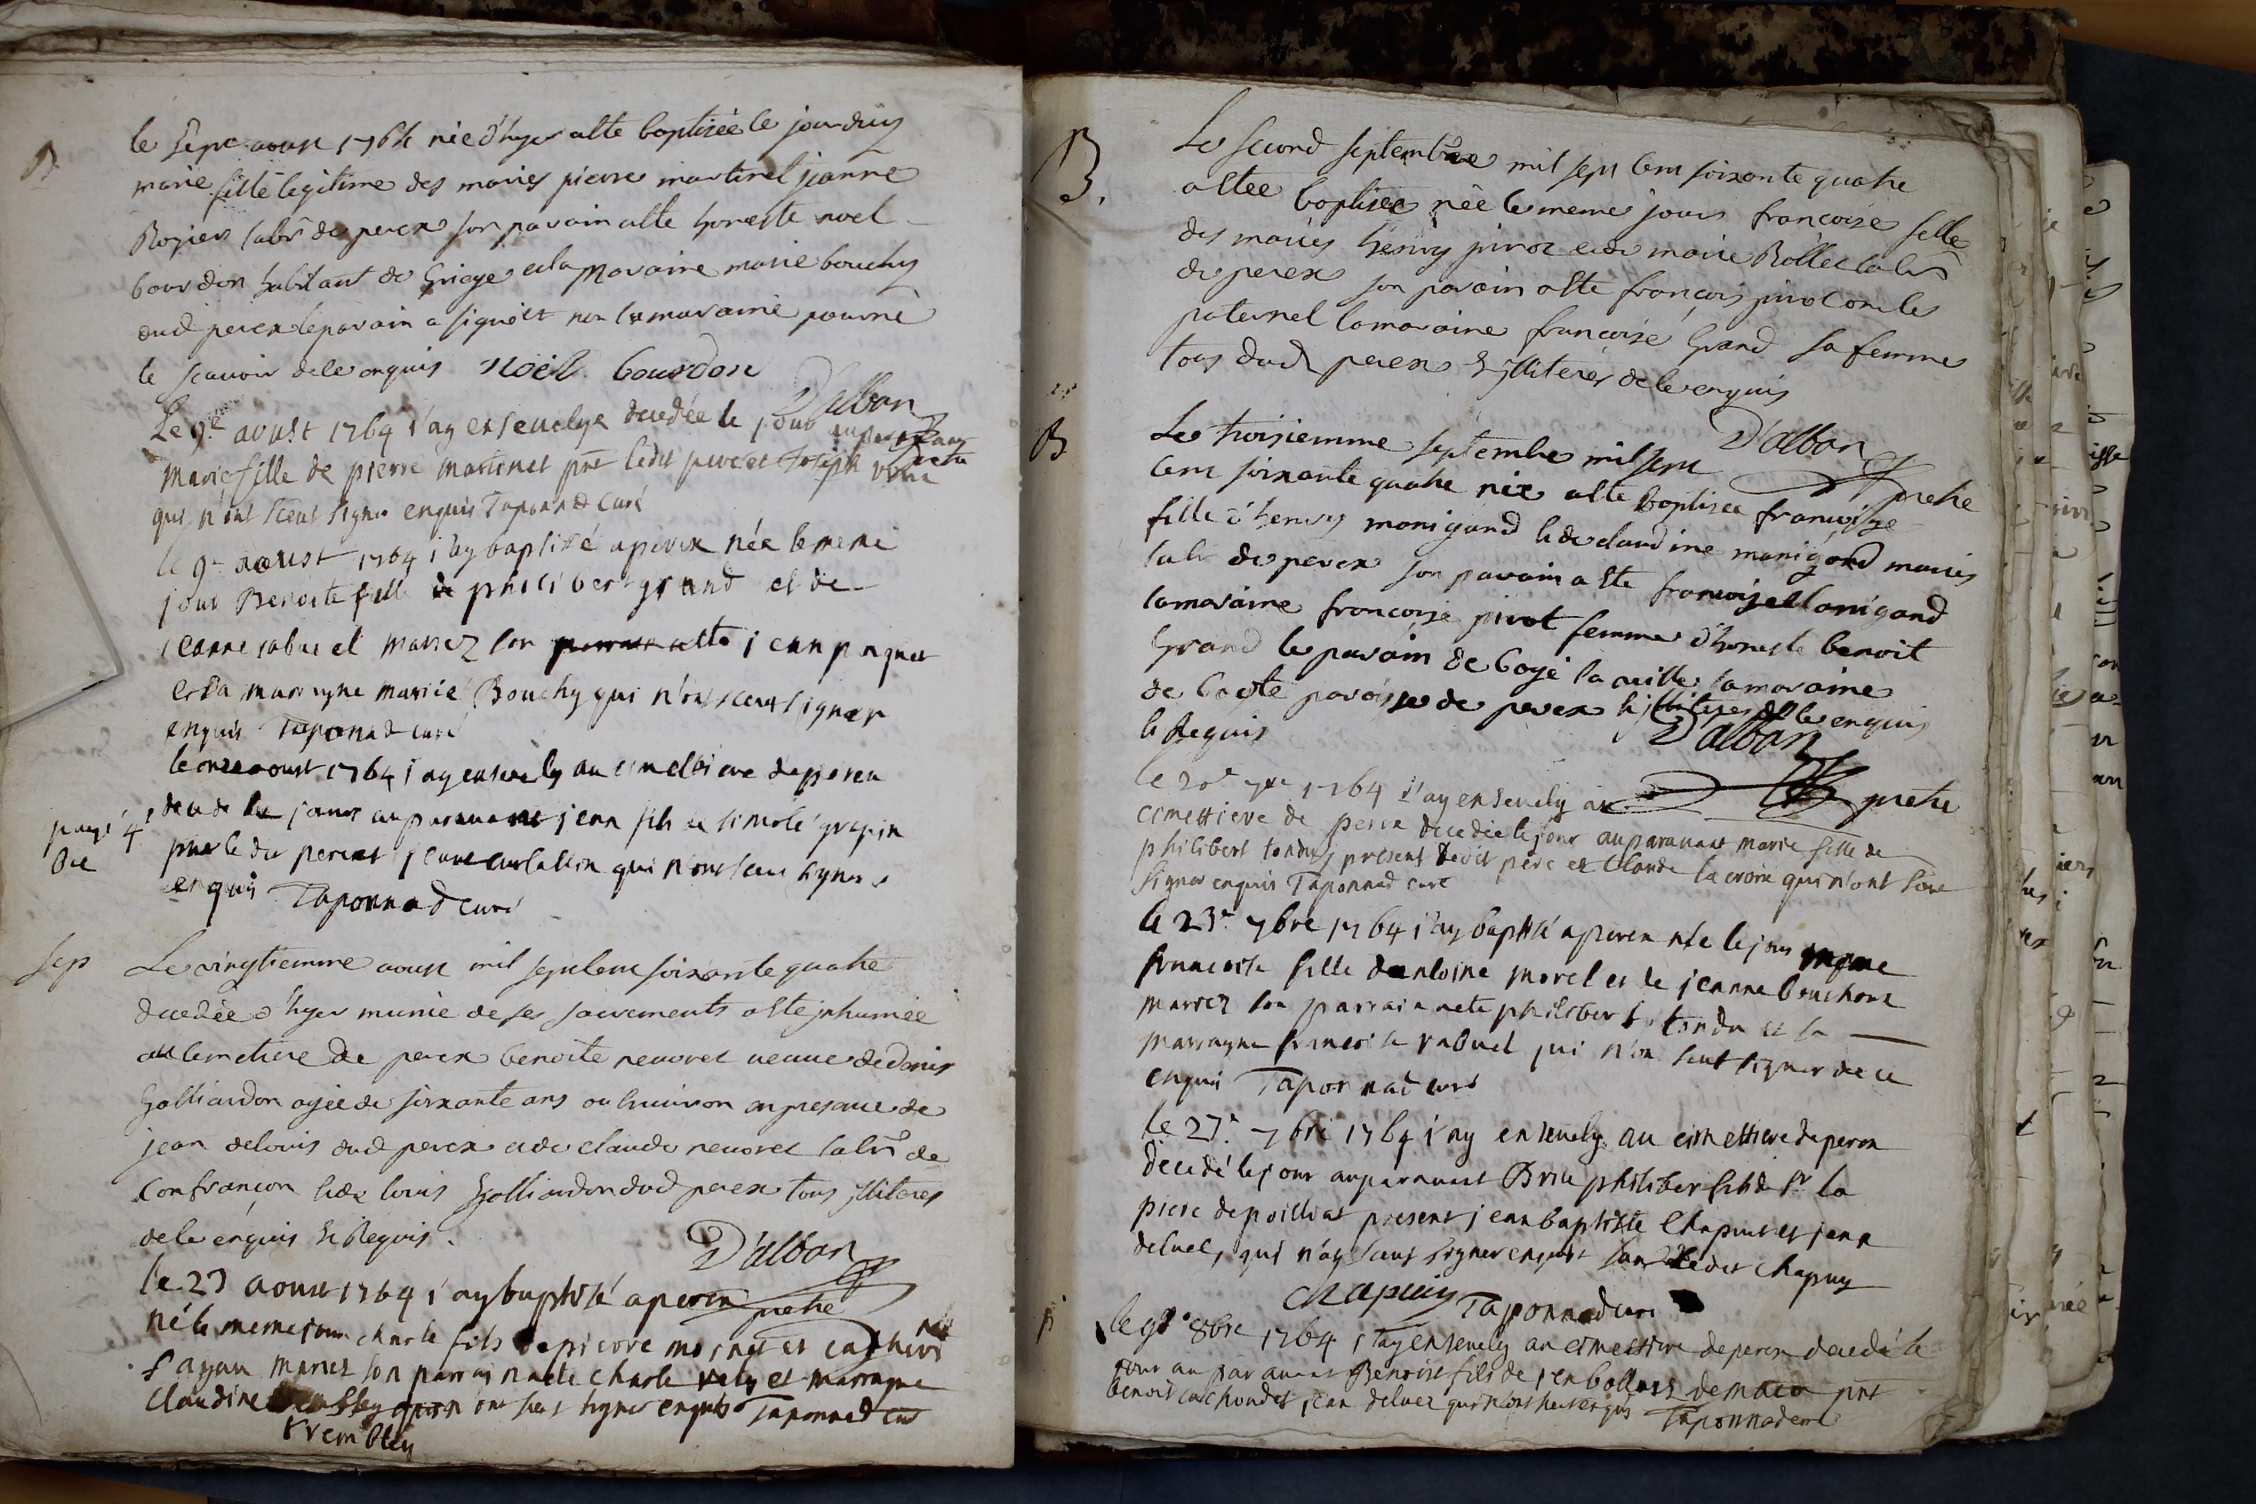 B
le sept aoust 1764 née d'hyer a été baptisée le jourduy
marie fille legitime des mariez pierre martinet jeanne
Rozier labr de perex son parain a été honeste noel
bourdon habitant de Griege et la Maraine marie bouchy
dud perex le parain a signé et non la maraine pour ne
le scavoir de le enquis Noël Bourdon
D'alban
pretre
Le 9e aoust 1764 j'ay ensevelye decedée le jour auparavant
marie fille de pierre martinet pnt ledit pere et Joseph
qui n'ont sceut signer enquis Taponnad curé
le 9e aoust 1764 j'ay baptisé a perex née le meme
jour Benoite fille de philibert grand et de
jeanne rabuel mariez son a été jean paquet
et sa marrayne mariée Bouchy qui n'ont sceut signer
enquis Taponnad curé
le onze aoust 1764 j'ay ensevely au cimetiere de perex
decede le jour auparavant jean fils de grepin
pnt le dit pere et qui n'ont sceu signer
enquis Taponnad curé
sep
Le vingtiemme aoust mil sept cent soixante quatre
decedée d'hyer munie de ses sacrements a été inhumée
au cimetiere de perex benoite renoret veuve de Denis
Galliardon agée de soixante ans ou environ en presence de
jean delouis dud perex et de claude renoret labr de
Confrançon et de louis Galliardon dud perex tous illiteres
de le enquis et Requis.
D'alban
pretre
le 23 aoust 1764 j'ay baptisé a perex
né le meme jour charle fils de pierre moinet et catheri
ne
fayau mariez son parrain a été charle vely et marrayne
Claudine ont sceut signer enquis Taponnad curé
trembley
B.
Le second septembre mil sept cent soixante quatre
a étée baptisée née le meme jour francoise fille
des mariés henry pivot et de marie Rollet labr
de perex son parain a été françois pivot oncle
paternel la maraine francoise Grand sa femme
tous dud perex et illiterés de le enquis
D'alban
pretre
B
Le troisiemme septembre mil sept
cent soixante quatre née a été baptisée francoise
fille d'henry manigand et de claudine manigand mariés
labr de perex son parain a été françois Manigand
la maraine francoise pivot femme d'honeste benoit
Grand le parain de Bagé la ville la maraine
de paroisse de perex et illiteres de le enquis
et Requis
D'alban
pretre
le 20e 7bre 1764 j'ay ensevely au
cimettiere de perex decedée le jour auparavant marie fille de
philibert tondu present ledit pere et Claude lacroix qui n'ont sceu
signer enquis Taponnad curé
le 23e 7bre 1764 j'ay baptisé a perex née le jour meme
francoise fille d'antoine morel et de jeanne bouchoux
mariez son parrain a été philibert tondu et sa
marrayne francoise rabuel qui n'ont sceut signer de ce
enquis Taponnad curé
le 27e 7bre 1764 j'ay ensevely au cimettiere de perex
decedé le jour auparavant Brice philiber fils de Sr la
piere de poilliat present jean baptiste Chapuit et jean
deluel, qui n'ay sceut signer enquis ledit chapuy
chapuiy Taponnad curé
le 9e 8bre 1764 j'ay ensevely au cimettiere de perex decedé le
jour auparavant Benoist fils de jean de macon pnt
benoit cuchoudet, jean deluel qui n'ont sceut enquis Taponnad curé